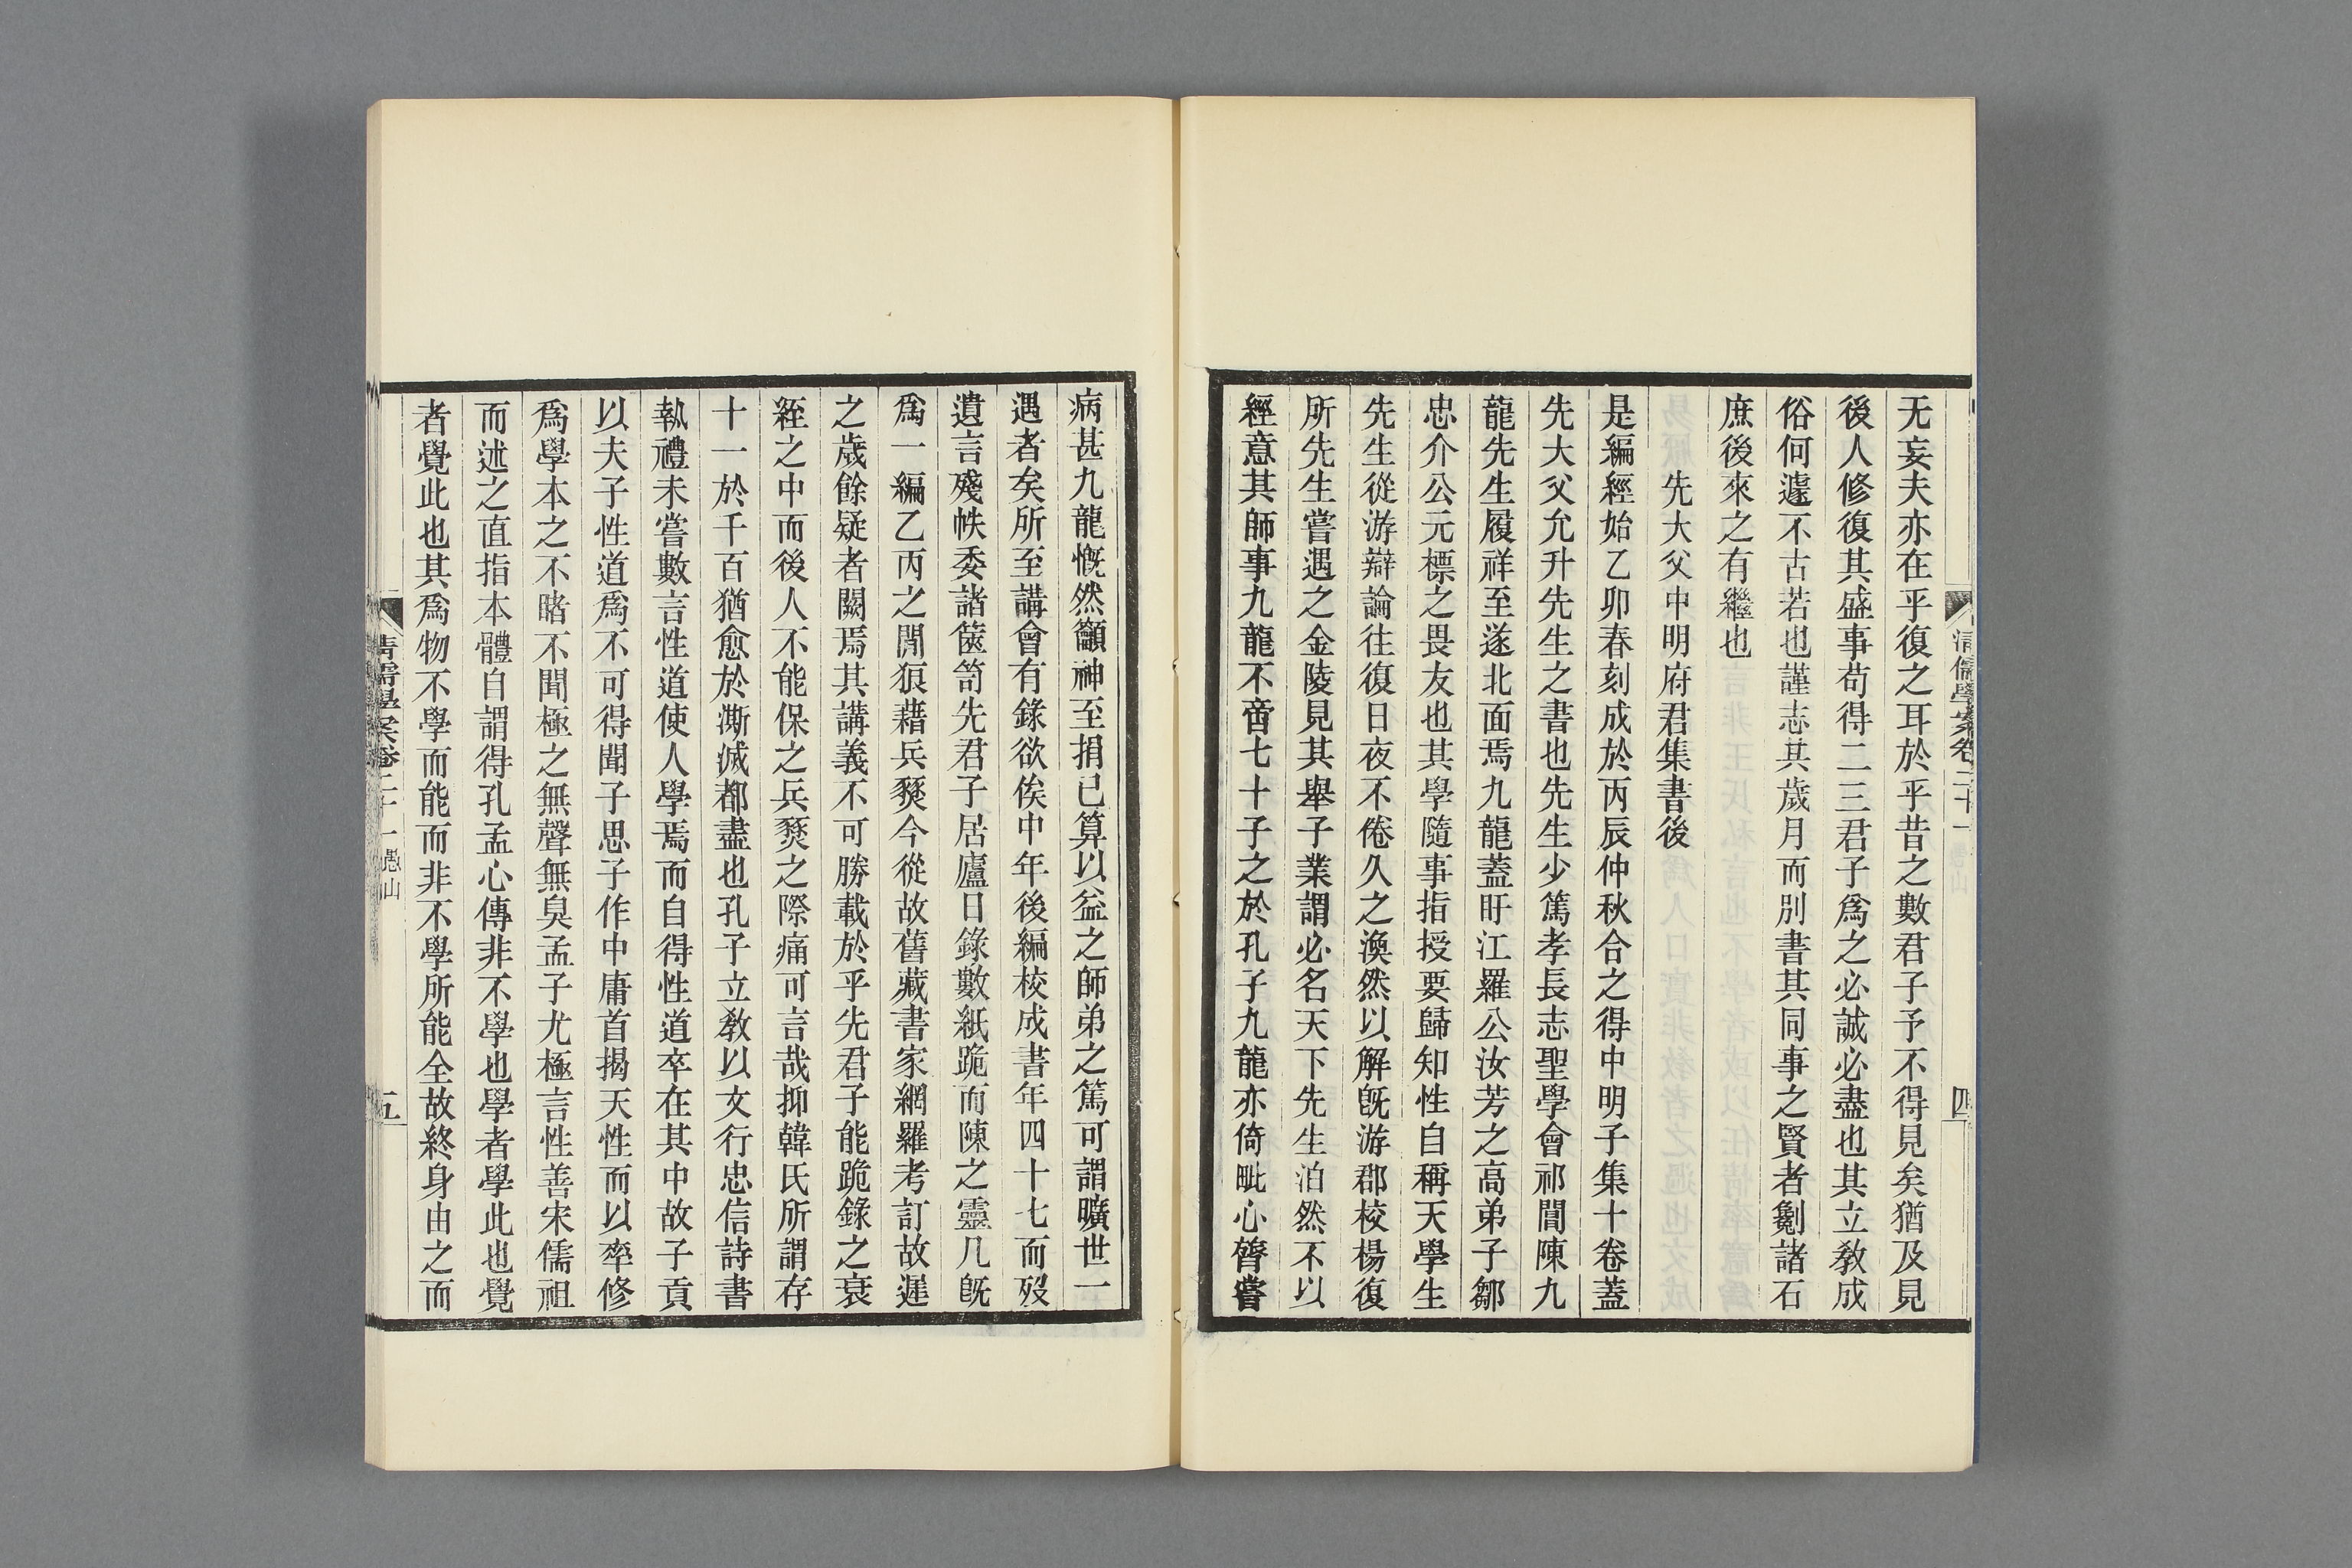 清儒學案卷二十一
愚山
四
无妄夫亦在乎復之耳於乎昔之數君子予不得見矣猶及見
後人修復其盛事苟得二三君子爲之必誠必盡也其立敎成
俗何遽不古若也謹志其歲月而別書其同事之賢者劖諸石
庶後來之有繼也
先大父中明府君集書後
是編經始乙卯春刻成於丙辰仲秋合之得中明子集十卷蓋
先大父允升先生之書也先生少篤孝長志聖學會祁閶陳九
龍先生履祥至遂北面焉九龍蓋盱江羅公汝芳之高弟子鄒
忠介公元標之畏友也其學隨事指授要歸知性自稱天學生
先生從游辯論往復日夜不倦久之渙然以解旣游郡校楊復
所先生嘗遇之金陵見其舉子業謂必名天下先生泊然不以
經意其師事九龍不啻七十子之於孔子九龍亦倚毗心膂嘗
病甚九龍慨然籲神至捐已算以益之師弟之篤可謂曠世一
遇者矣所至講會有錄欲俟中年後編校成書年四十七而歿
遺言殘帙委諸篋笥先君子居廬日錄數紙跪而陳之靈几旣
爲一編乙丙之閒痕藉兵燹今從故舊藏書家網羅考訂故遲
之歲餘疑者闕焉其講義不可勝載於乎先君子能跪錄之衰
絰之中而後人不能保之兵燹之際痛可言哉抑韓氏所謂存
十一於千百猶愈於澌滅都盡也孔子立敎以文行忠信詩書
執禮未嘗數言性道使人學焉而自得性道卒在其中故子貢
以夫子性道爲不可得聞子思子作中庸首揭天性而以率修
爲學本之不睹不聞極之無聲無臭孟子尤極言性善宋儒祖
而述之直指本體自謂得孔孟心傳非不學也學者學此也覺
者覺此也其爲物不學而能而非不學所能全故終身由之而
清儒學案卷二十一
愚山
五